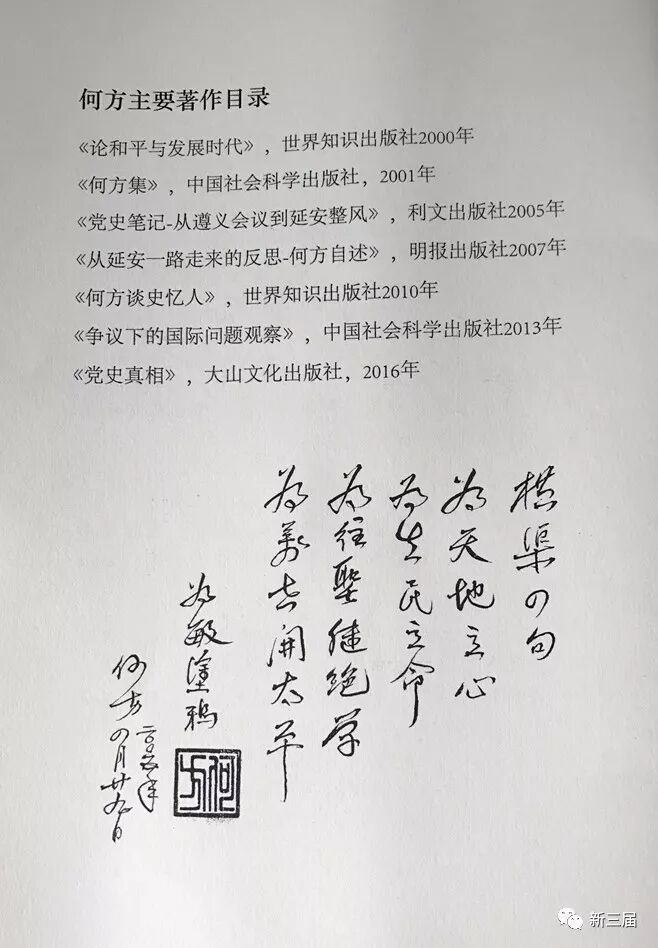 何方主要著作目录
《论和平与发展时代》，世界知识出版社2000年
《何方集》，中国社会科学出版社，2001年
《党史笔记-从遵义会议到延安整风》，利文出版社2005年
《从延安一路走来的反思-何方自述》，明报出版社2007年
《何方谈史忆人》，世界知识出版社2010年
《争议下的国际问题观察》，中国社会科学出版社2013年
《党史真相》，大山文化出版社，2016年
横渠四句
为天地立心
为生民立命
为往聖继绝学
为萬世開太平
为敏塗鸦
何方
年
四月廿九日
何方
新三届